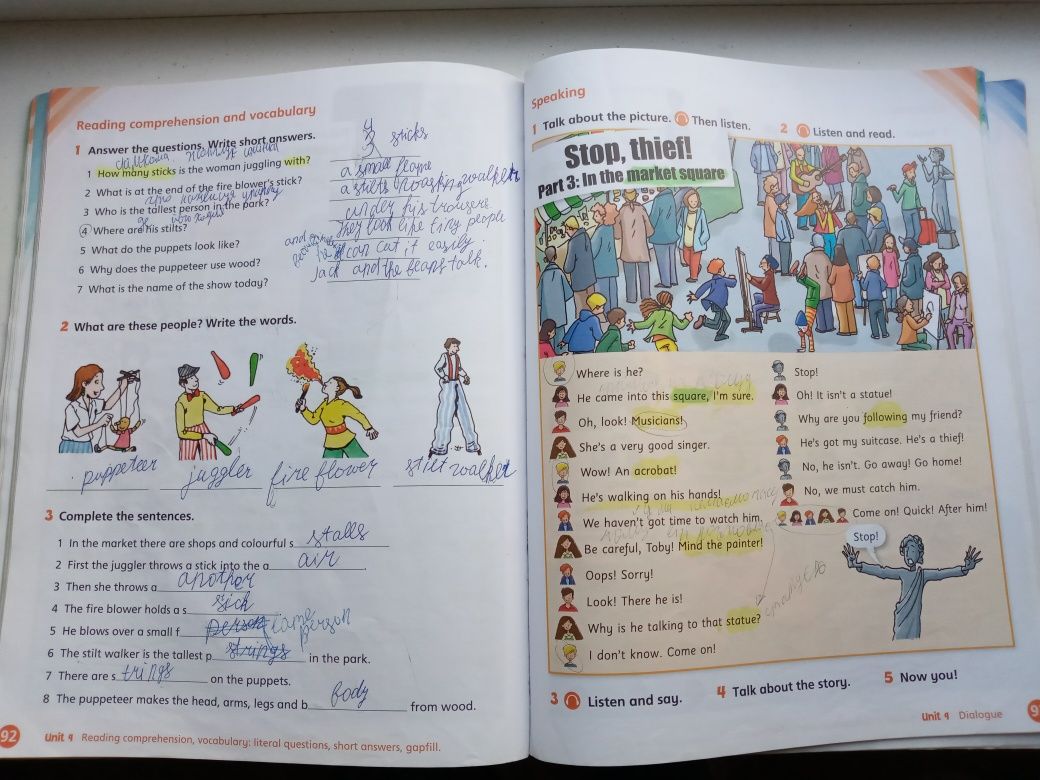 Reading comprehension and vocabulary
1 Answer the questions. Write short answers.
1 How many sticks is the woman juggling with?
3 sticks
2 What is at the end of the fire blower's stick?
a small flame
3 Who is the tallest person in the park?
4 Where are his stilts?
under his trousers
5 What do the puppets look like?
they look like tiny people
6 Why does the puppeteer use wood?
can cut it easily
7 What is the name of the show today?
jack and the beanstalk.
2 What are these people? Write the words.
puppeteer
juggler
fire flower
stilt walker
3 Complete the sentences.
1 In the market there are shops and colourful s stalls
2 First the juggler throws a stick into the a air.
3 Then she throws a another
4 The fire blower holds a s sick
5 He blows over a small f
person
6 The stilt walker is the tallest p strings in the park.
7 There are s trings on the puppets.
8 The puppeteer makes the head, arms, legs and b body from wood.
92 Unit 9 Reading comprehension, vocabulary: literal questions, short answers, gapfill.
Speaking
1 Talk about the picture. Then listen. 2 Listen and read.
Stop, thief!
Part 3: In the market square
Where is he?
He came into this square, I'm sure.
Oh, look! Musicians!
She's a very good singer.
Wow! An acrobat!
He's walking on his hands!
We haven't got time to watch him.
Be careful, Toby! Mind the painter!
Oops! Sorry!
Look! There he is!
Why is he talking to that statue?
I don't know. Come on!
Stop!
Oh! It isn't a statue!
Why are you following my friend?
He's got my suitcase. He's a thief!
No, he isn't. Go away! Go home!
No, we must catch him.
Come on! Quick! After him!
Stop!
3 Listen and say. 4 Talk about the story. 5 Now you!
Unit 9 Dialogue